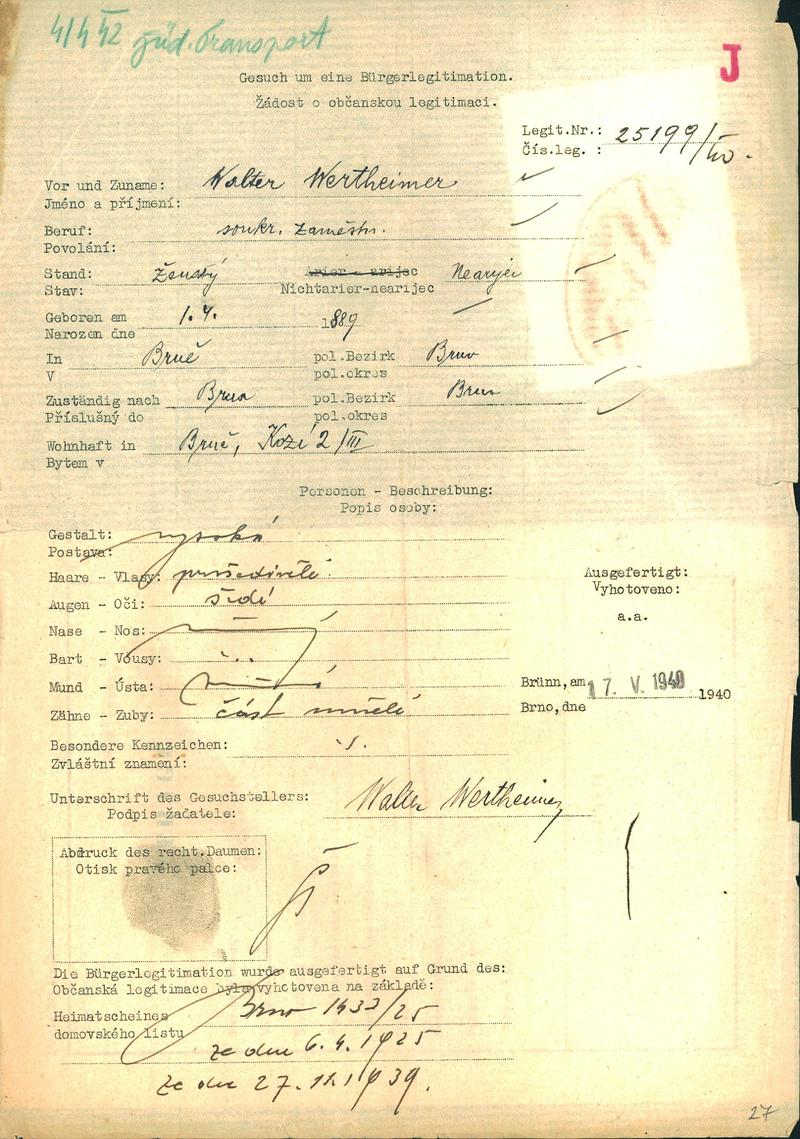 4/4 42 jüd. Transport
J
Gesuch um eine Bürgerlegitimation.
Žádost o občanskou legitimaci.
Legit.Nr.: 25199/40.
Čís.leg. :
Vor und Zuname: Walter Wertheimer
Jméno a příjmení:
Beruf: soukr. zaměstn.
Povolání:
Stand: ženatý Arier - arijec Nearijec
Stav: Nichtarier-nearijec
Geboren am 1.4. 1889
Narozen dne
In Brně pol.Bezirk Brno
V pol.okres
Zuständig nach Brna pol.Bezirk Brno
Příslušný do pol.okres
Wohnhaft in Brně, Kozí 2/III
Bytem v
Personen - Beschreibung:
Popis osoby:
Gestalt: vysoká
Postava:
Haare - Vlasy: prošedivělé
Augen - Oči: šedé
Nase - Nos:
Bart - Vousy:
Mund - Ústa:
Zähne - Zuby: část umělé
Ausgefertigt:
Vyhotoveno:
a.a.
Brünn,am 17. V. 1940 1940
Brno,dne
Besondere Kennzeichen:
Zvláštní znamení:
Unterschrift des Gesuchstellers: Walter Wertheimer
Podpis žadatele:
Abdruck des recht.Daumen:
Otisk pravého palce:
Die Bürgerlegitimation wurde ausgefertigt auf Grund des:
Občanská legitimace byla vyhotovena na základě:
Heimatscheines Brno 1433/25
domovského listu
ze dne 6.4.1925
ze dne 27.11.1939.
27